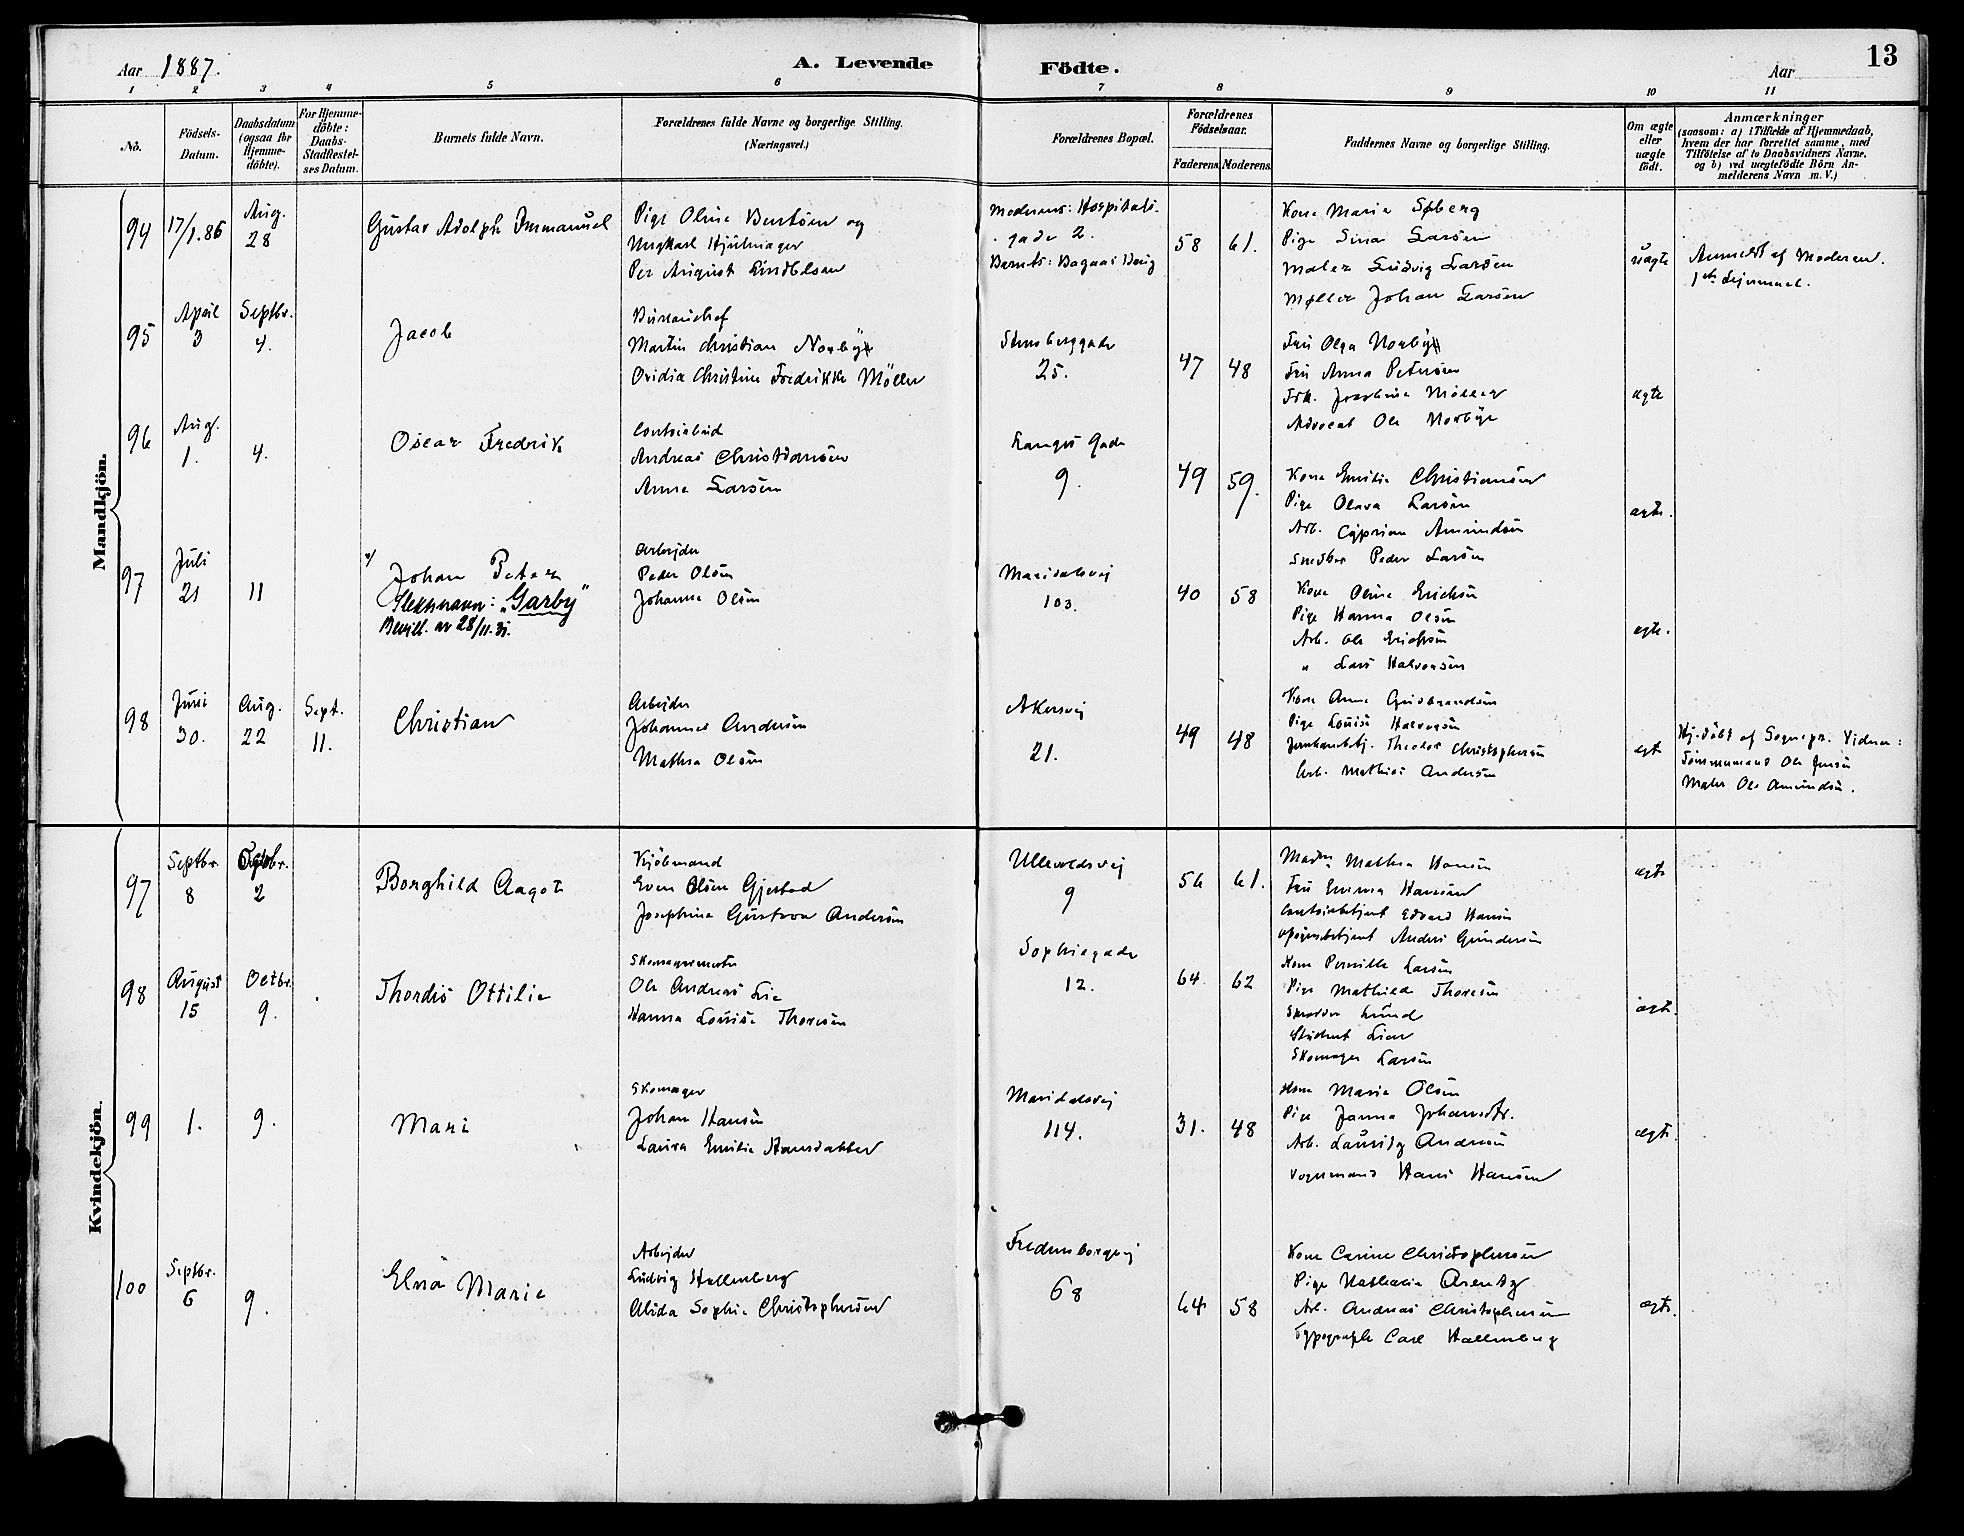 Aar 1887. A. Levende Födte. Aar 13
1 2 3 4 5 6 7 8 9 10 11
No. Födsels-Datum. Daabsdatum (ogsaa for Hjemmedöbte). For Hjemmedöbte: Daabs-Stadfæstelses Datum. Barnets fulde Navn. Forældrenes fulde Navne og borgerlige Stilling. (Næringsvei.) Forældrenes Bopæl. Forældrenes Födselsaar. Faderens. Moderens. Faddernes Navne og borgerlige Stilling. Om ægte eller uægte födt. Anmærkninger (saasom: a) i Tilfælde af Hjemmedaab, hvem der har forrettet samme, med Tilföielse af to Daabsvidners Navne, og b) ved uægtefödte Börn Anmelderens Navn m. V.)
Mandkjön.
94 17/1.86 Aug. 28 Gustav Adolph Immanuel
Pige Oline Berntsen og
Ungkarl
Per August
Moderens: Hospitals-
gade 2.
Barnets:
58 61.
Kone Maria Søberg
Pige Lina Larsen
Maler Ludvig Larsen
Møller Johan Larsen
uægte
Anmeldt af Moderen.
1ste Leiermaal.
95 April 3 Septbr. 4. Jacob
Bureauchef
Martin Christian Norbye
Ovidia Christine Fredrikke Möller
Stensberggade
25.
47 48
Fru Olga Norbye
Fru Anna Petersen
Frk. Josephine Möller
Advocat Ole Norbye
ægte
96 Aug. 1. 4. Oscar Fredrik
Contoirbud
Andreas Christiansen
Anna Larsen
Langes Gade
9.
49 59.
Kone Emilie Christiansen
Pige Olava Larsen
Arb. Cyprian Amundsen
Snedker Peder Larsen
ægte.
97 Juli 21 11
Johan Peter
Slektsnavn: "Garby"
Bevill. av 28/11.31.
Arbejder
Peder Olsen
Johanne Olsen
Maridalsvej
103.
40 58
Kone Oline Ericksen
Pige Hanna Olsen
Arb. Ole Ericksen
" Lars Halvorsen
egte.
98 Juni 30. Aug. 22 Sept. 11. Christian
Arbejder
Johannes Andersen
Mathea Olsen
Akersvej
21.
49 48
Kone Anne Gulbrandsen
Pige Louise Halvorsen
Theodor Christophersen
Arb. Mathias Andersen
egte
Hj.döbt af Sognepr. Vidner:
Tömmermand Ole Jensen
Maler Ole Amundsen.
Kvindekjön.
97 Septbr. 8 Octbr. 2 Borghild Aagot
Kjöbmand
Even Olsen Gjestad
Josephine Gustava Andersen
Ullevoldsvej
9
56 61.
Madm Mathea Hansen
Fru Emma Hansen
Contoirbetjent Edvard Hansen
Anders Gundersen
ægte
98 August 15 Octbr. 9. Thordis Ottilie
Skomagermester
Ole Andreas Lie
Hanna Louise Thoresen
Sophiegade
12.
64 62
Kone Pernille Larsen
Pige Mathilde Thoresen
Skrædder Lund
Student Lier
Skomager Larsen
ægte.
99 1. 9. Mari
Skomager
Johan Hansen
Laura Emilie Hansdatter
Maridalsvej
114.
31. 48
Kone Marie Olsen
Pige Janna Johansdtr.
Arb. Lauritz Andersen
Vognmand Hans Hansen
ægte
100 Septbr. 6 9. Elna Marie
Arbejder
Ludvig Hallenberg
Alida Sophie Christophersen
Fredensborgvej
68
64 58
Kone Carine Christophersen
Pige Nathalia Arentz
Arb. Andreas Christophersen
Typograph Carl Hallenberg
ægte.